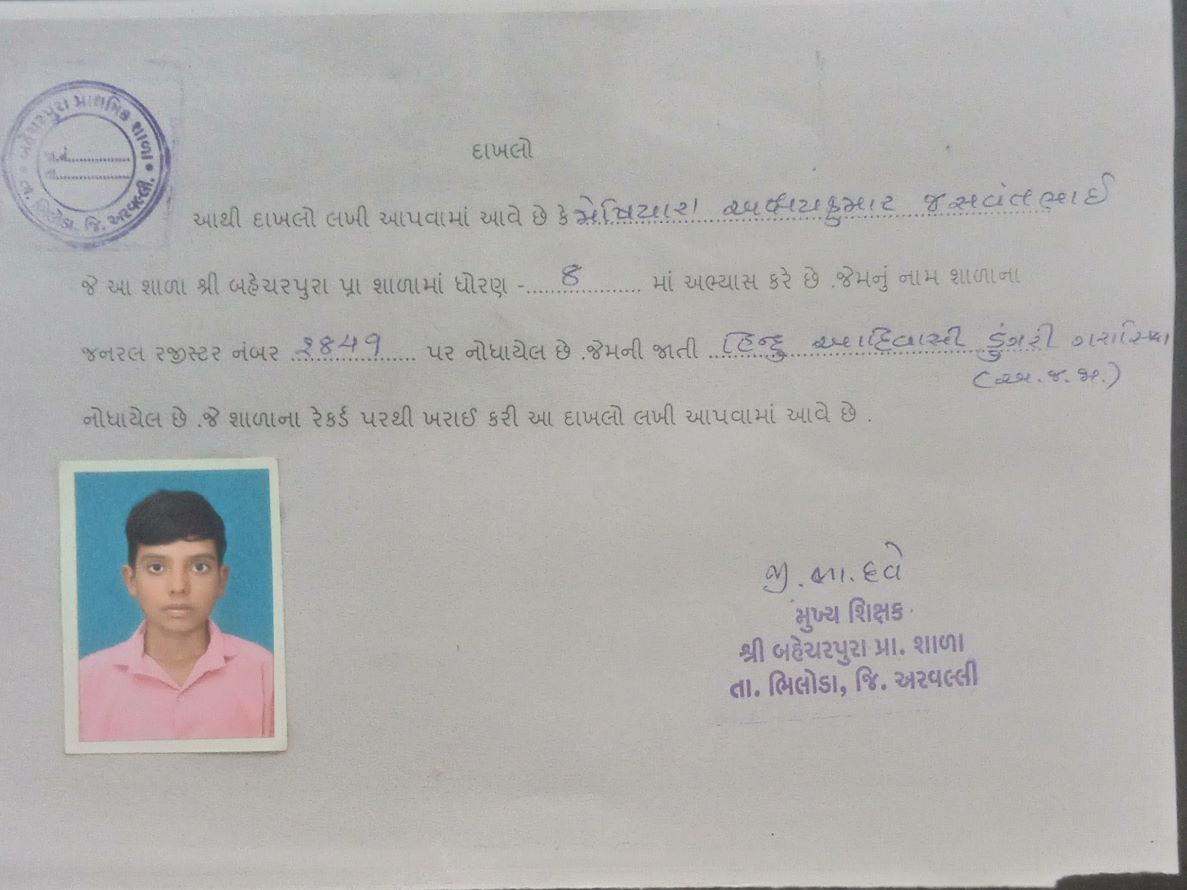 બહેચરપુરા પ્રાથમિક શાળા
જા.નં.............
તા.............
તા. ભિલોડા. જિ. અરવલ્લી.
દાખલો
આથી દાખલો લખી આપવામાં આવે છે કે મોથિયારા અક્ષયકુમાર જસવંતભાઈ
જે આ શાળા શ્રી બહેચરપુરા પ્રા શાળામાં ધોરણ -......8......... માં અભ્યાસ કરે છે .જેમનું નામ શાળાના
જનરલ રજીસ્ટર નંબર ૨૪૪૧ પર નોધાયેલ છે .જેમની જાતી હિન્દુ આદિવાસી ડુંગરી ગરાસિયા
(અ.જ.જા.)
નોધાયેલ છે .જે શાળાના રેકર્ડ પરથી ખરાઈ કરી આ દાખલો લખી આપવામાં આવે છે .
જી. ભા. દવે
મુખ્ય શિક્ષક
શ્રી બહેચરપુરા પ્રા. શાળા
તા. ભિલોડા, જિ. અરવલ્લી